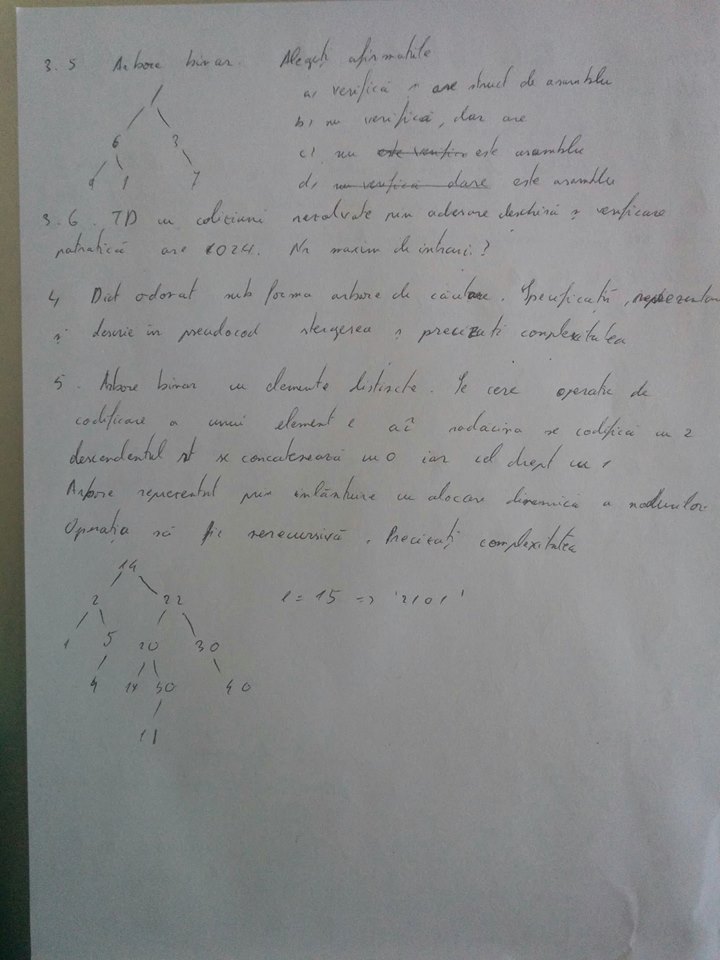 3.5 Arbore binar. Alegeți afirmațiile
a) verifică și are struct de ansamblu
1
b) nu verifică, dar are
6 3
c) nu este verifica este ansamblu
9 1 7
d) nu verifică dare este ansamblu
3.6. TD cu coliziuni rezolvate prin adresare deschisă și verificare
patratică are 1024. Nr maxim de intrari?
4 Dict ordonat sub forma arbore de căutare. Specificații, reprezentare
și descrie în pseudocod stergerea și precizați complexitatea
5. Arbore binar cu elemente distincte. Se cere operatia de
codificare a unui element e aî radacina se codifică cu 2
descendentul st se concatenează cu 0 iar cel drept cu 1
Arbore reprezentat prin inlănțuire cu alocare dinamică a nodurilor
Operația să fie nerecursivă. Precizați complexitatea
19
2 22 e = 15 => '2101'
1 5 20 30
4 14 50 40
11